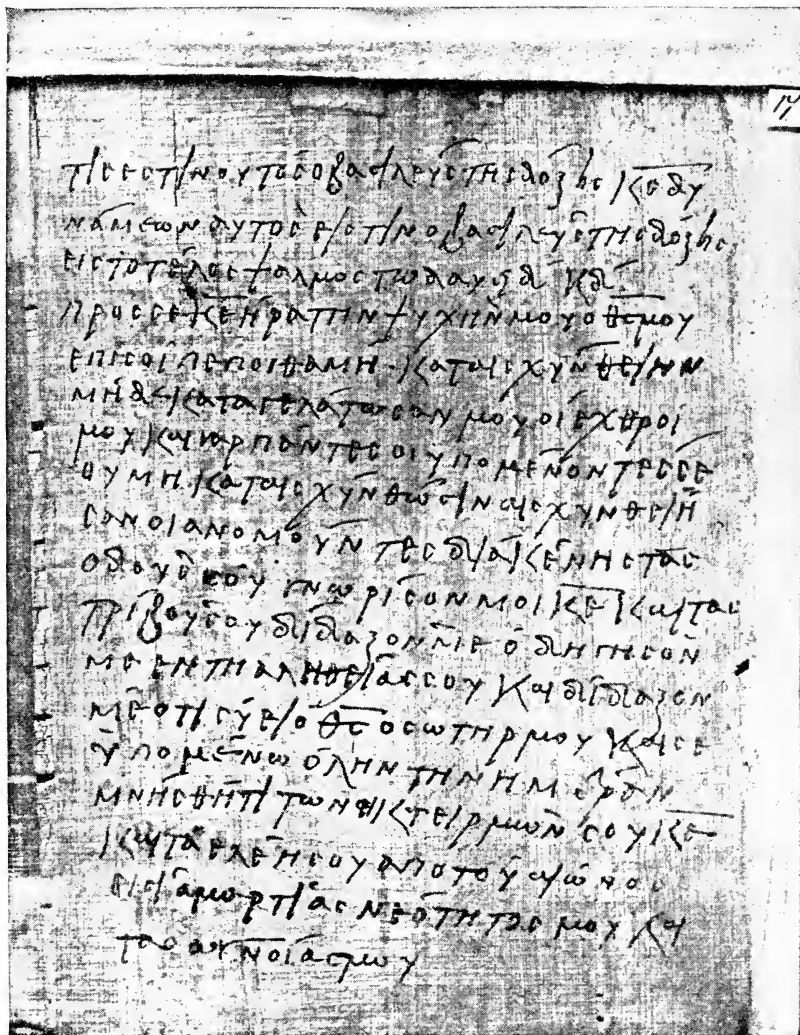 τις εστιν ουτος ο βασιλευς της δοξης κς δυ
ναμεων αυτος εστιν ο βασιλευς της δοξης
εις το τελος ψαλμος τω δαυιδ κδ
προς σε κε ηρα την ψυχην μου ο θς μου
επι σοι πεποιθα μη καταισχυνθειην
μηδε καταγελατωσαν μου οι εχθροι
μου και γαρ παντες οι υπομενοντες σε
ου μη καταισχυνθωσιν αισχυνθειη
σαν οι ανομουντες δια κενης τας
οδους σου γνωρισον μοι κε και τας
τριβους σου διδαξον με οδηγησον
με εν τη αληθειας σου και διδαξον
με οτι συ ει ο θς ο σωτηρ μου και σε
υπομενω ολην την ημεραν
μνησθητι των οικτειρμων σου κε
και τα ελεη σου απο του αιωνος
εισι αμαρτιας νεοτητος μου και
τας αγνοιας μου